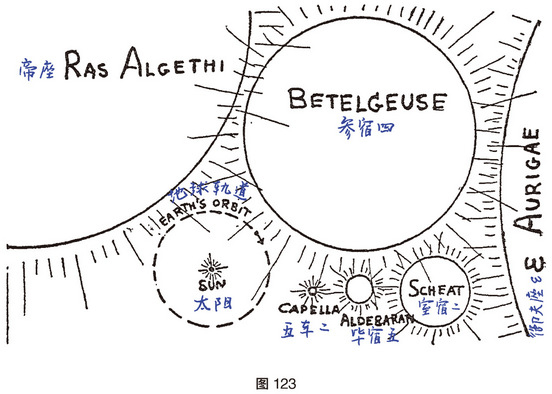 帝座 RAS ALGETHI
BETELGEUSE
参宿四
地球轨道
EARTH'S ORBIT
SUN
太阳
CAPELLA
五车二
ALDEBARAN
毕宿五
SCHEAT
室宿二
御夫座ε ε AURIGAE
图 123